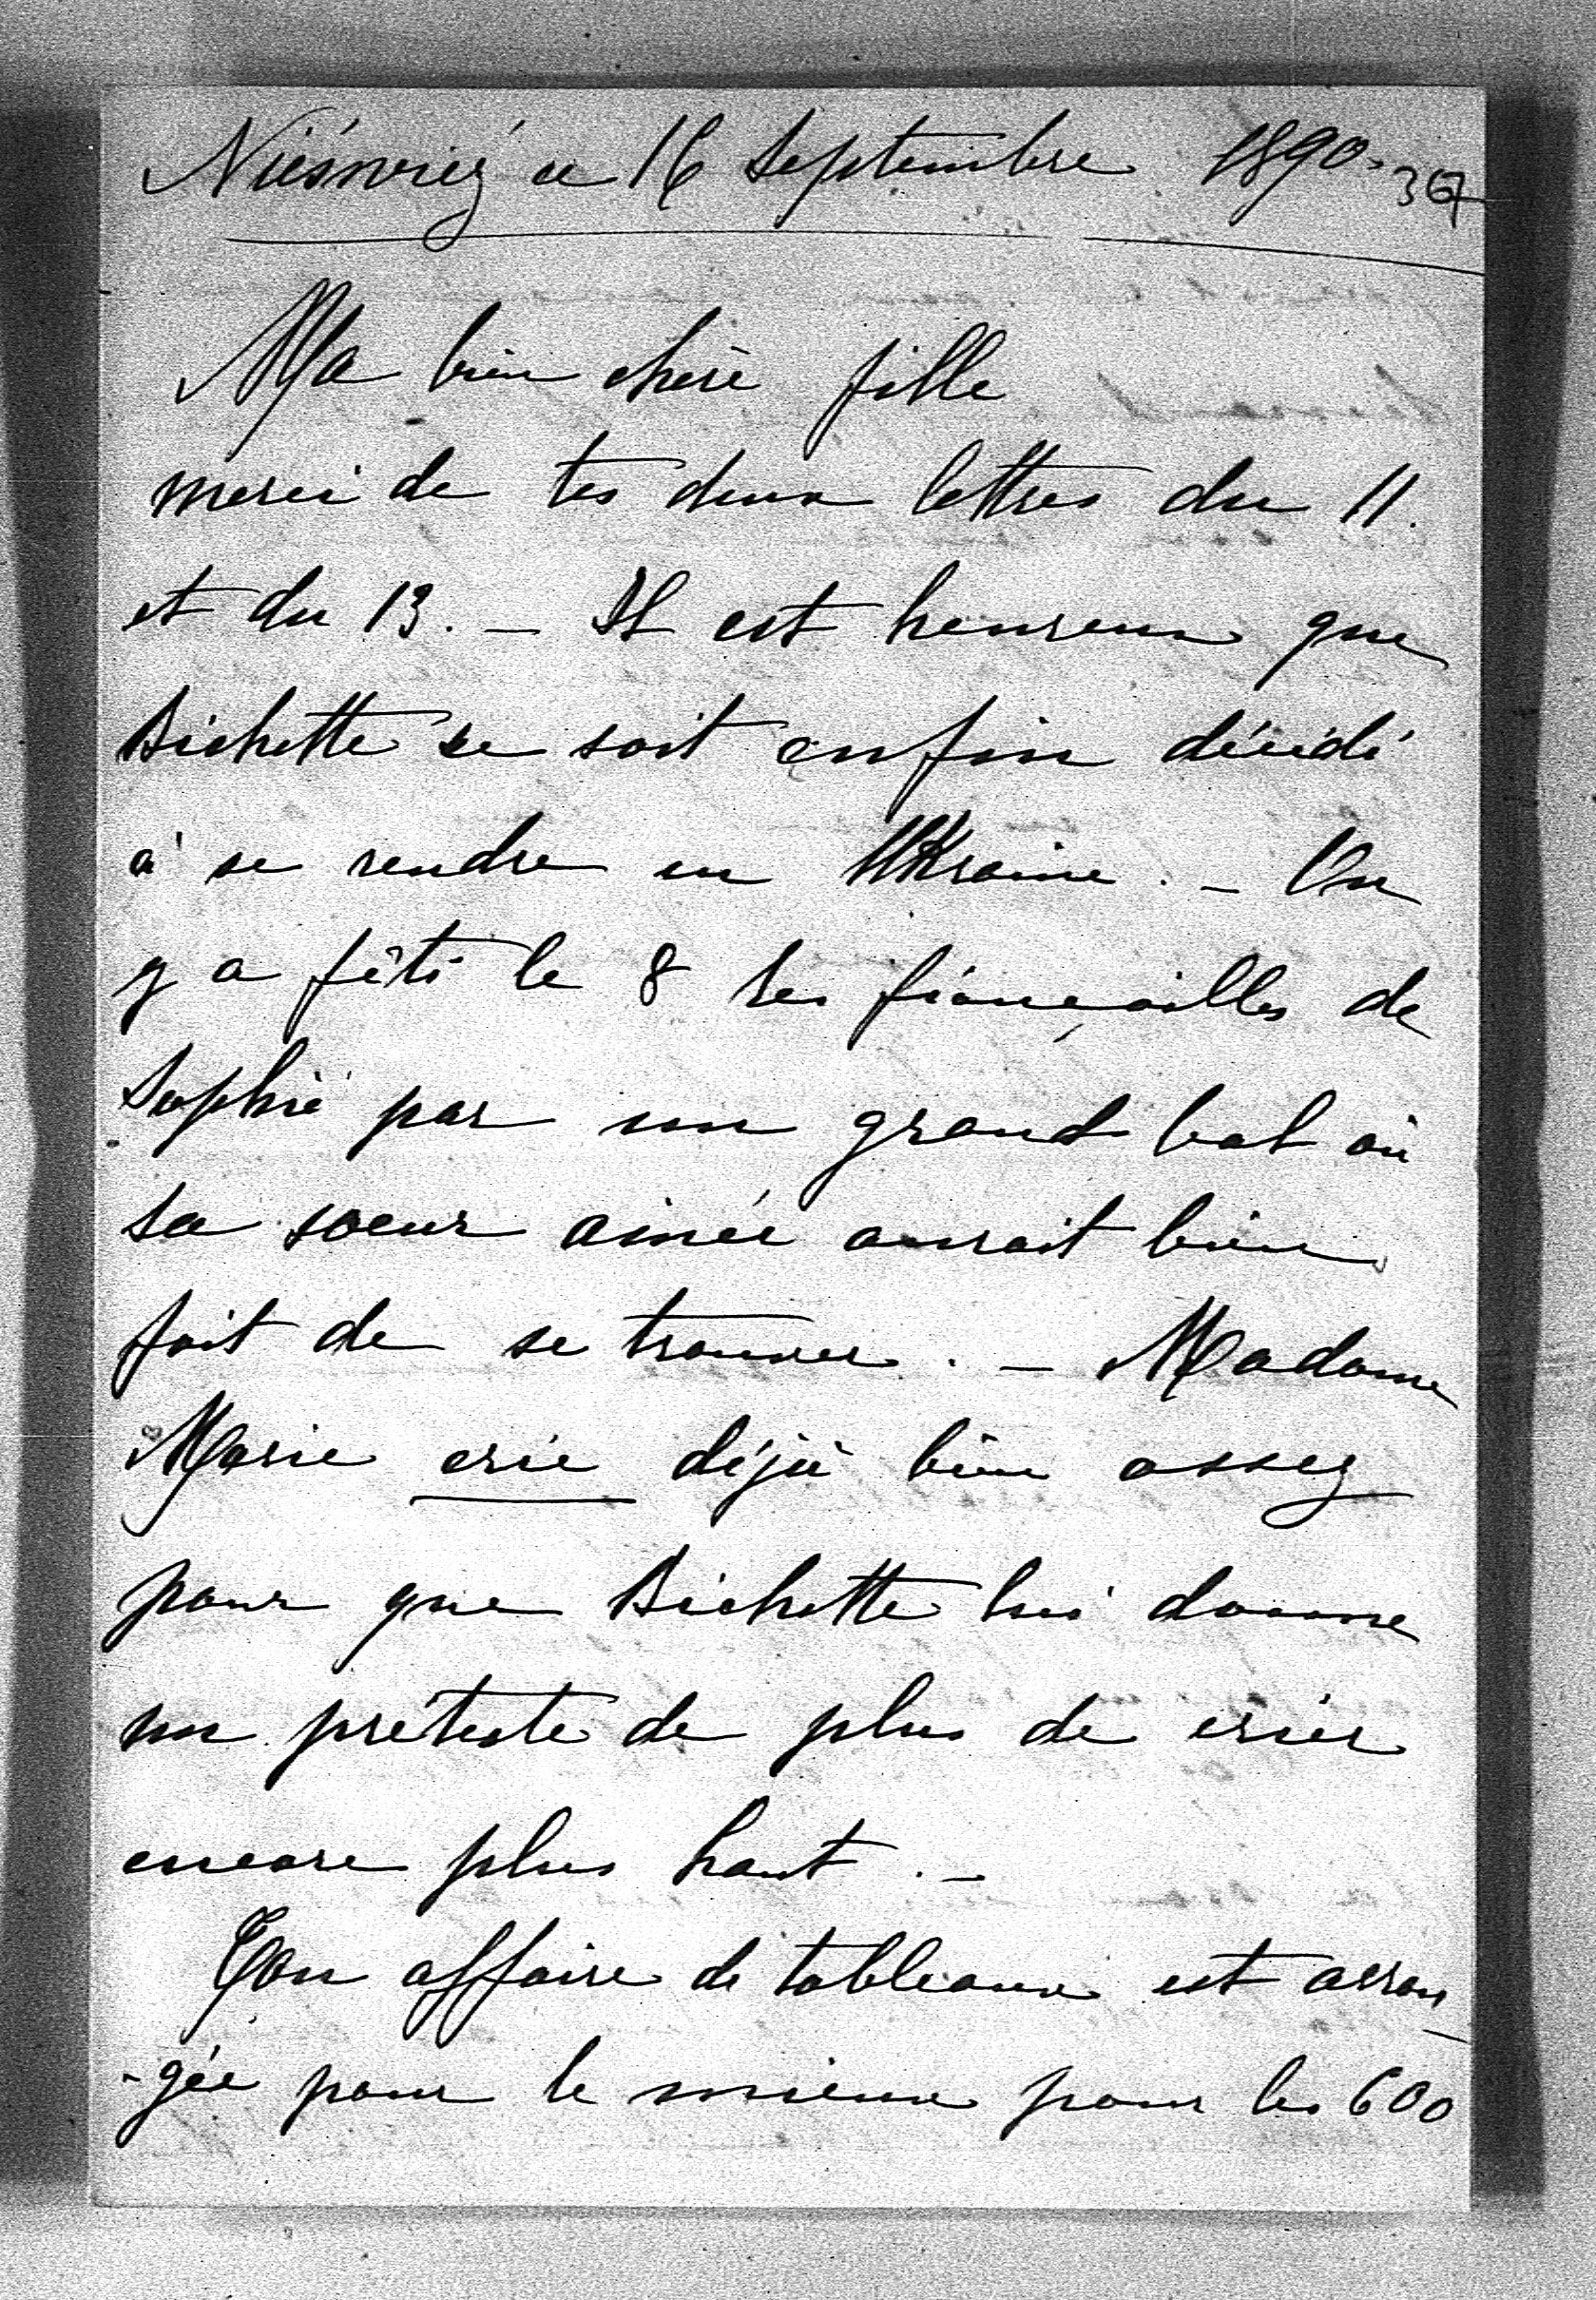 Nieśwież ce 16 Septembre 1890.
367
Ma bien chère fille
merci de tes deux lettres du 11.
et du 13. — Il est heureux que
Bichette se soit enfin décidé
à se rendre en Ukraine. — On
y a fêté le 8 les fiançailles de
Sophie par un grand bal où
sa soeur ainée aurait bien
fait de se trouver. — Madame
Marie crie déjà bien assez
pour que Bichette lui donne
un prétexte de plus de crier
encore plus haut. —
Ton affaire de tableaux est arran-
-gée pour le mieux pour les 600